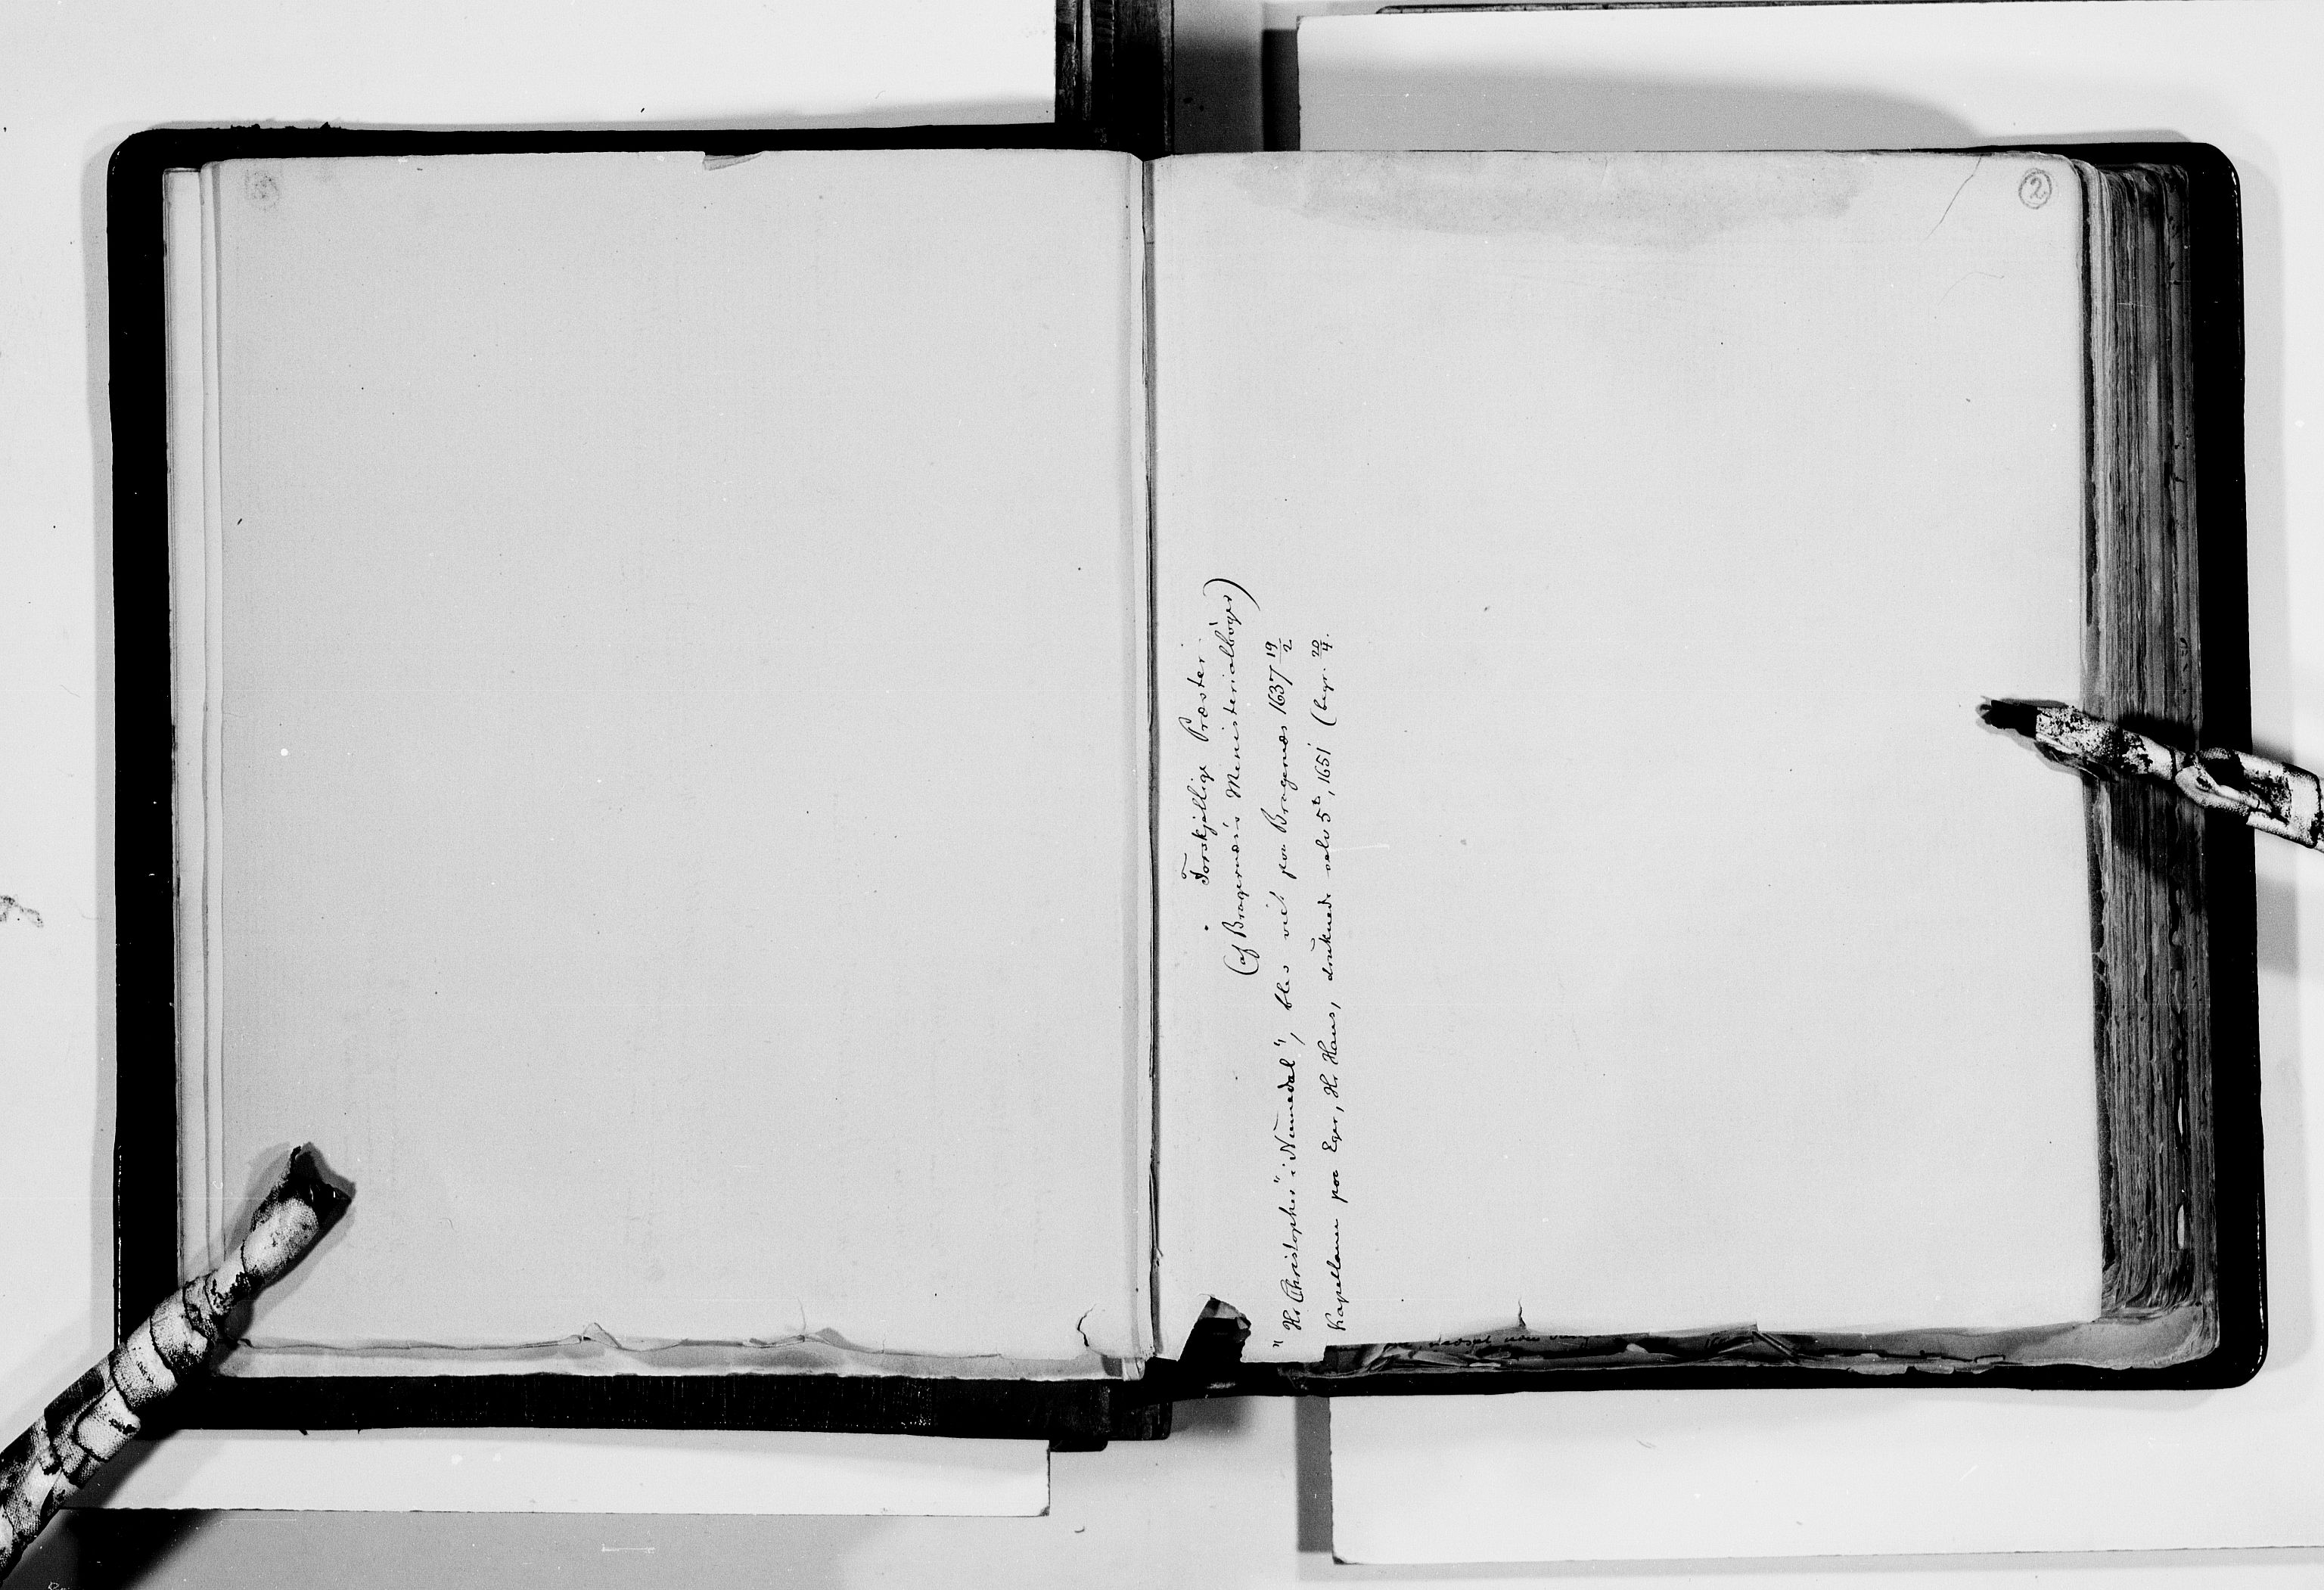 2
Forskjellige Præster
(af Bragernæs's Ministerialbøger)
"Hr Christopher" i Numedal", blev viet paa Bragernæs 1637 19/2
Kapellanen paa Eger, Hr Hans, druknede selv 5te, 1651 (begr. 20/4.